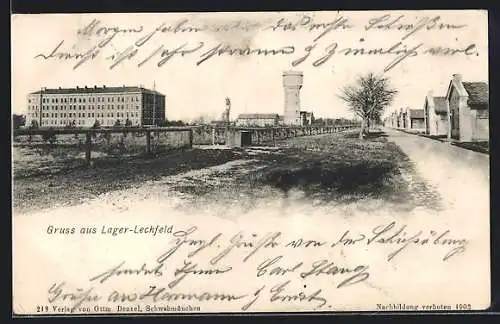 Morgen haben wir das erste Schießen
dieses Jahr
ziemlich viel.
Gruss aus Lager-Lechfeld
Herzl. Grüße von der
sendet Ihnen Carl Stang
Grüße an Hermann & Ernst
218 Verlag von Ottm. Denzel, Schwabmünchen
Nachbildung verboten 1902